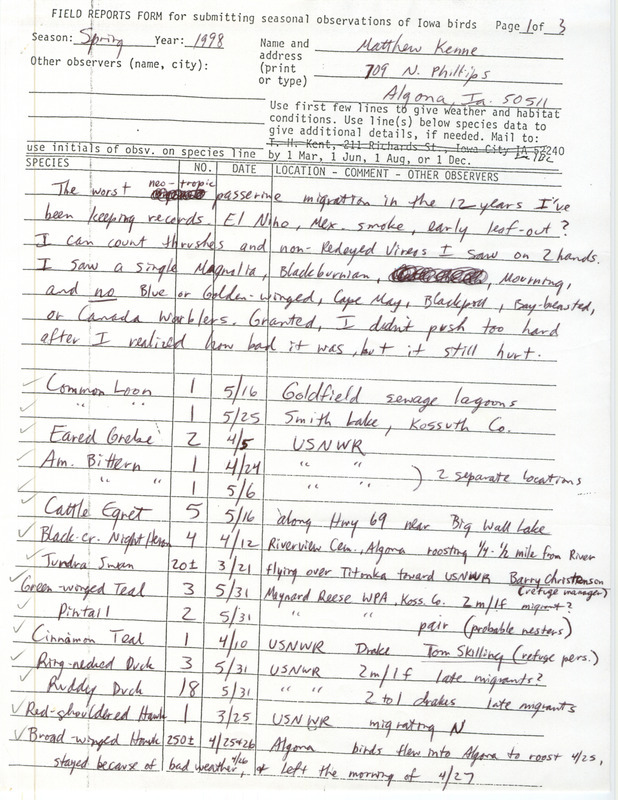 FIELD REPORTS FORM for submitting seasonal observations of Iowa birds Page 1 of 3
Season: Spring Year: 1998
Name and address (print or type) Matthew Kenne
709 N. Phillips
Algona, Ia. 50511
Other observers (name, city):
Use first few lines to give weather and habitat
conditions. Use line(s) below species data to
give additional details, if needed. Mail to:
T. H. Kent, 211 Richards St., Iowa City IA 52240
use initials of obsv. on species line by 1 Mar, 1 Jun, 1 Aug, or 1 Dec.
SPECIES NO. DATE LOCATION - COMMENT - OTHER OBSERVERS
The worst neo-tropic passerine migration in the 12 years I've
been keeping records. El Niño, Mex. smoke, early leaf-out?
I can count thrushes and non-Redeyed Vireos I saw on 2 hands.
I saw a single Magnolia, Blackburnian, Mourning,
and no Blue or Golden-winged, Cape May, Blackpoll, Bay-breasted,
or Canada Warblers. Granted, I didn't push too hard
after I realized how bad it was, but it still hurt.
✓ Common Loon 1 5/16 Goldfield sewage lagoons
✓ " " 1 5/25 Smith Lake, Kossuth Co.
✓ Eared Grebe 2 4/5 USNWR
✓ Am. Bittern 1 4/24 " " ) 2 separate locations
✓ " " 1 5/6 " "
✓ Cattle Egret 5 5/16 along Hwy 69 near Big Wall Lake
✓ Black-cr. Night Heron 4 4/12 Riverview Cem., Algona roosting 1/4-1/2 mile from River
✓ Tundra Swan 20± 3/21 flying over Titonka toward USNWR Barry Christenson (refuge manager)
✓ Green-winged Teal 3 5/31 Maynard Reese WPA, Koss. Co. 2m/1f migrant?
✓ Pintail 2 5/31 " " pair (probable nesters)
✓ Cinnamon Teal 1 4/10 USNWR Drake Tom Skilling (refuge pers.)
✓ Ring-necked Duck 3 5/31 USNWR 2m/1f late migrants?
✓ Ruddy Duck 18 5/31 " " 2 to 1 drakes late migrants
✓ Red-shouldered Hawk 1 3/25 USNWR migrating N
✓ Broad-winged Hawk 250± 4/25+26 Algona birds flew into Algona to roost 4/25,
stayed because of bad weather 4/26, & left the morning of 4/27